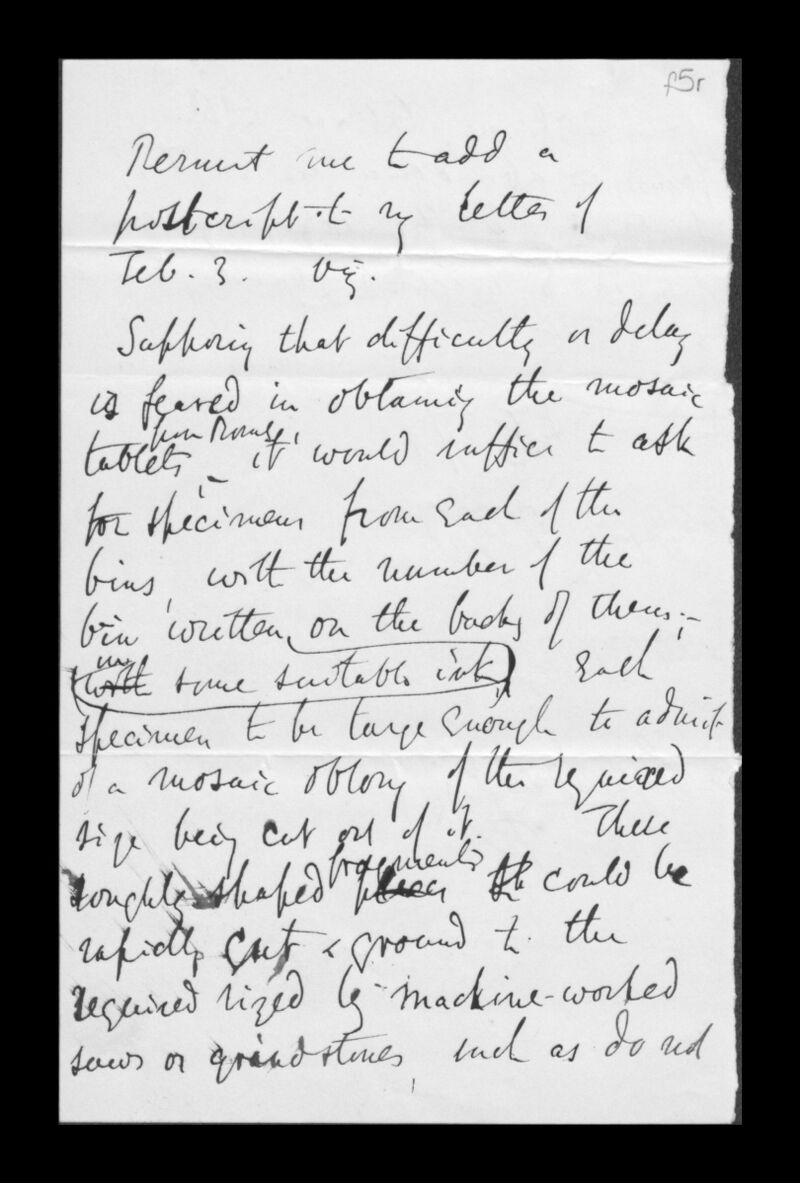 f5r
Permit me to add a
postcript to my letter of
Feb. 3. viz.
Supposing that difficulty or delay
is feared in obtaining the mosaic
from Rome,
tablets it would suffice to ask
for specimens from each of the
bins, with the number of the
bin written on the backs of them;–
in
with some suitable ink, Each
specimen to be large enough to admit
of a mosaic oblong of the required
size being cut out of it. These
fragments
roughly shaped pieces could be
rapidly cut & ground to the
required sized by machine-worked
saws or grindstones, such as do not